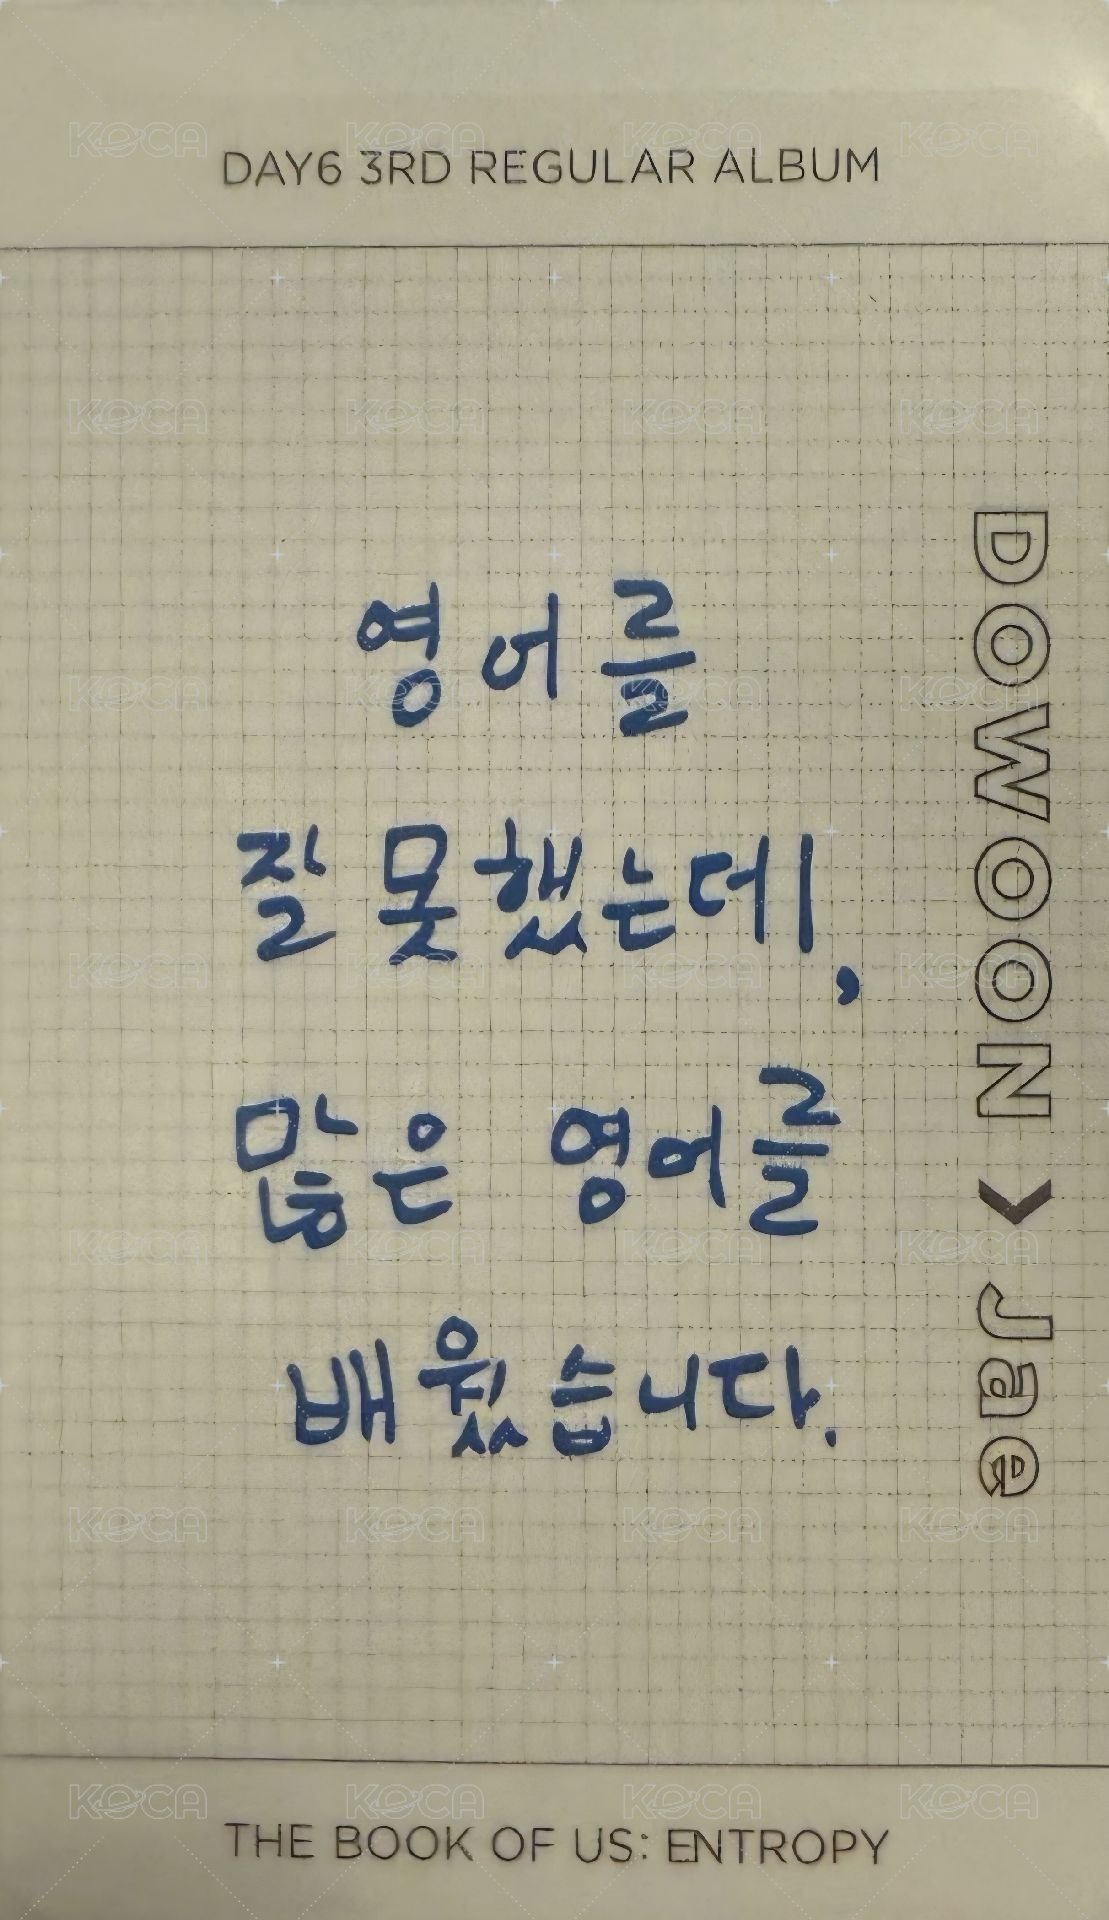 DAY6 3RD REGULAR ALBUM
영어를
잘 못했는데,
많은 영어를
배웠습니다.
DOWOON > Jae
THE BOOK OF US: ENTROPY
KOCA